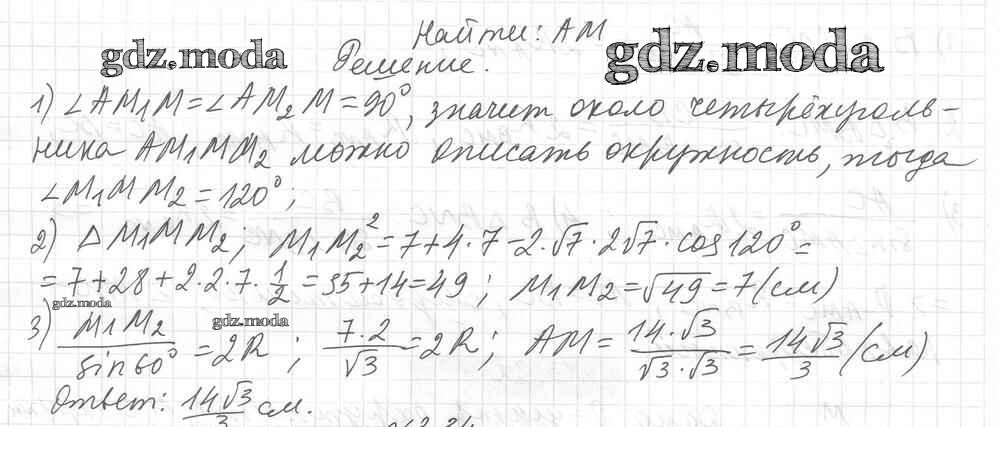 Найти: AM
gdz.moda
gdz.moda
Решение.
1) ∠AM₁M=∠AM₂M=90°, значит около четырёхуголь-
ника AM₁MM₂ можно описать окружность, тогда
∠M₁MM₂=120°;
2) △M₁MM₂; M₁M₂²=7+4·7-2·√7·2√7·cos120°=
=7+28+2·2·7·1/2=35+14=49; M₁M₂=√49=7(см)
gdz.moda
gdz.moda
3) M₁M₂/sin60°=2R; 7·2/√3=2R; AM=14·√3/√3·√3=14√3/3(см)
Ответ: 14√3/3 см.